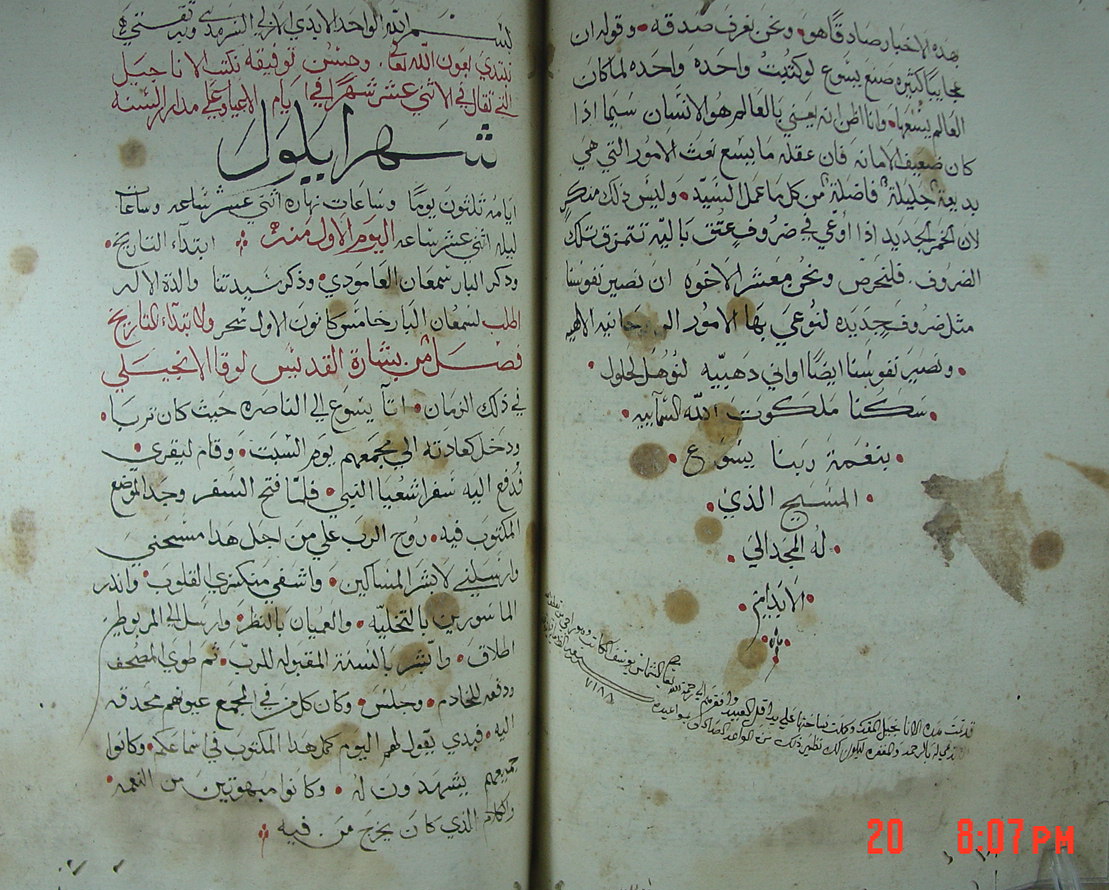 هذه الاخبار صادقًا هو ونحن نعرف صدقه وقوله ان
عجايبًا كثيره صنع يسوع لو كتبت واحده واحده لما كان
العالم يسعها وانا اظن انه يعني بالعالم هو الانسان سيما اذا
كان ضعيف الامانه فان عقله ما يسع نعت الامور التي هي
بديعة جليلة فاضلة من كل ما عمل السيد وليس ذلك منكر
لان الخمر الجديد اذا اوعي في ضروف عتق باليه تتمزق تلك
الضروف فلنحرص ونحن معشر الاخوه ان نصير نفوسنا
مثل ضروف جديده لنوعي بها الامور الروحانيه الالهيه
ونصير نفوسنا ايضًا اواني ذهبيه لنوهل لحلول
سكنا ملكوت الله السمايه
بنعمة ربنا يسوع
المسيح الذي
له المجد الي
الابد امين
قد تمت هذه الاناجيل
بسم الله الواحد الابدي الازلي السرمدي وبه ثقتي
نبتدي بعون الله تعالى وحسن توفيقه نكتب الاناجيل
التي تقال في الاثني عشر شهرًا في ايام الاعياد على مدار السنه
شهر ايلول
ايامه ثلثون يومًا وساعات نهاره اثني عشر ساعه وساعات
ليله اثني عشر ساعه اليوم الاول منه ابتداء التاريخ
وذكر البار سمعان العامودي وذكر سيدتنا والدة الاله
اطلب لسمعان البار خامس كانون الاول سحر ولابتداء التاريخ
فصل من بشارة القديس لوقا الانجيلي
في ذلك الزمان اتا يسوع الي الناصره حيث كان تربا
ودخل كعادته الي مجمعهم يوم السبت وقام ليقري
فدفع اليه سفر اشعيا النبي فلما فتح السفر وجد الموضع
المكتوب فيه روح الرب علي من اجل هذا مسحني
وارسلني لابشر المساكين واشفي منكسري القلوب وانذر
الماسورين بالتخليه والعميان بالنظر وارسل الي المربوطين
اطلاق وابشر بالسنة المقبوله للرب ثم طوي المصحف
ودفعه للخادم وجلس وكان كل من في المجمع عيونهم محدقه
اليه فبدي يقول لهم اليوم كمل هذا المكتوب في اسماعكم وكانوا
جميعهم يشهدون له وكانوا مبهوتين من النعمه
والكلام الذي كان يخرج من فيه
20 8:07 PM